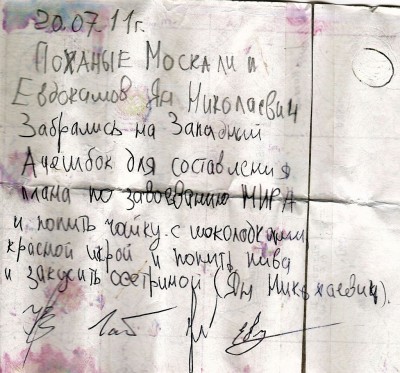 20.07.11г.
Поханые Москали и
Евдокамов Ян Николаевич
Забрались на Западный
Ачешбок для составления
плана по завоеванию МИРА
и попить чайку с шоколадками
красной икрой и попить пива
и закусить осетриной (Ян Николаевич).